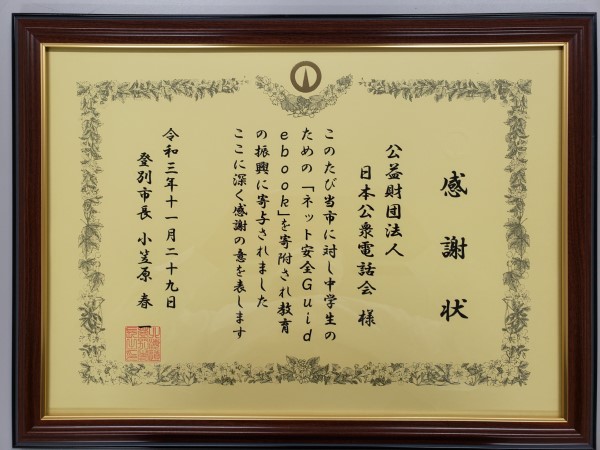 感謝状
公益財団法人
日本公衆電話会 様
このたび当市に対し中学生の
ための「ネット安全Guid
ebook」を寄附され教育
の振興に寄与されました
ここに深く感謝の意を表します
令和三年十一月二十九日
登別市長 小笠原 春一